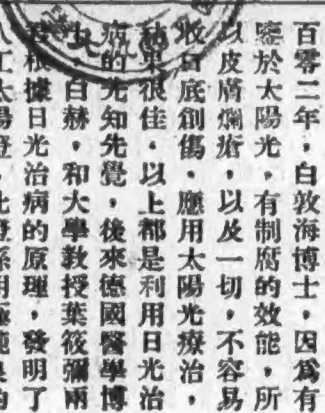 百零二年，白敦海博士，因爲有
鑒於太陽光，有制腐的效能，所
以皮膚爛瘡，以及一切，不容易
收口底創傷，應用太陽光療治，
結果很佳。以上都是利用日光治
病的先知先覺，後來德國醫學博
士，白赫，和大學教授葉筱彌兩
君根據日光治病的原理，發明了
人工太陽燈，此燈係用極純良的